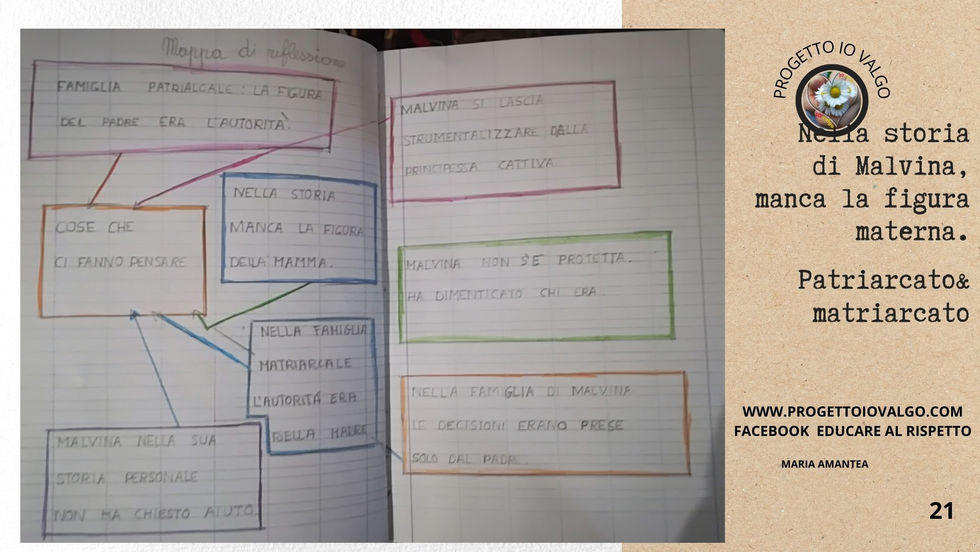 Mappa di riflessione
FAMIGLIA PATRIALCALE: LA FIGURA
DEL PADRE ERA L'AUTORITÀ.
COSE CHE
CI FANNO PENSARE
NELLA STORIA
MANCA LA FIGURA
DELLA MAMMA.
NELLA FAMIGLIA
MATRIARCALE
L'AUTORITÁ ERA
DELLA MADRE
MALVINA NELLA SUA
STORIA PERSONALE
NON HA CHIESTO AIUTO.
MALVINA SI LASCIA
STRUMENTALIZZARE DALLA
PRINCIPESSA CATTIVA.
MALVINA NON S'E PROTETTA.
HA DIMENTICATO CHI ERA.
NELLA FAMIGLIA DI MALVINA
LE DECISIONI ERANO PRESE
SOLO DAL PADRE.
PROGETTO IO VALGO
Nella storia
di Malvina,
manca la figura
materna.
Patriarcato&
matriarcato
WWW.PROGETTOIOVALGO.COM
FACEBOOK EDUCARE AL RISPETTO
MARIA AMANTEA
21